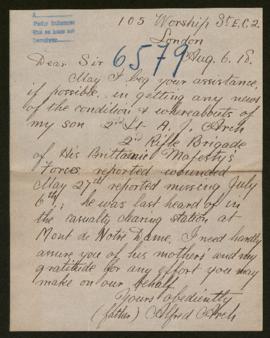 105 Worship St E.C.2.
London
6579
Aug. 6. 18.
Dear Sir
May I beg your assistance,
if possible, in getting any news
of the condition & whereabouts of
my son 2nd Lt A. J. Arch
2nd Rifle Brigade
of His Brittannic Majesty's
Forces reported wounded
May 27th reported missing July
6th; he was last heard of in
the casualty clearing station at
Mont de Notre Dame. I need hardly
assure you of his mothers and my
gratitude for any effort you may
make on our behalf
Yours obediently
(father) Alfred Arch